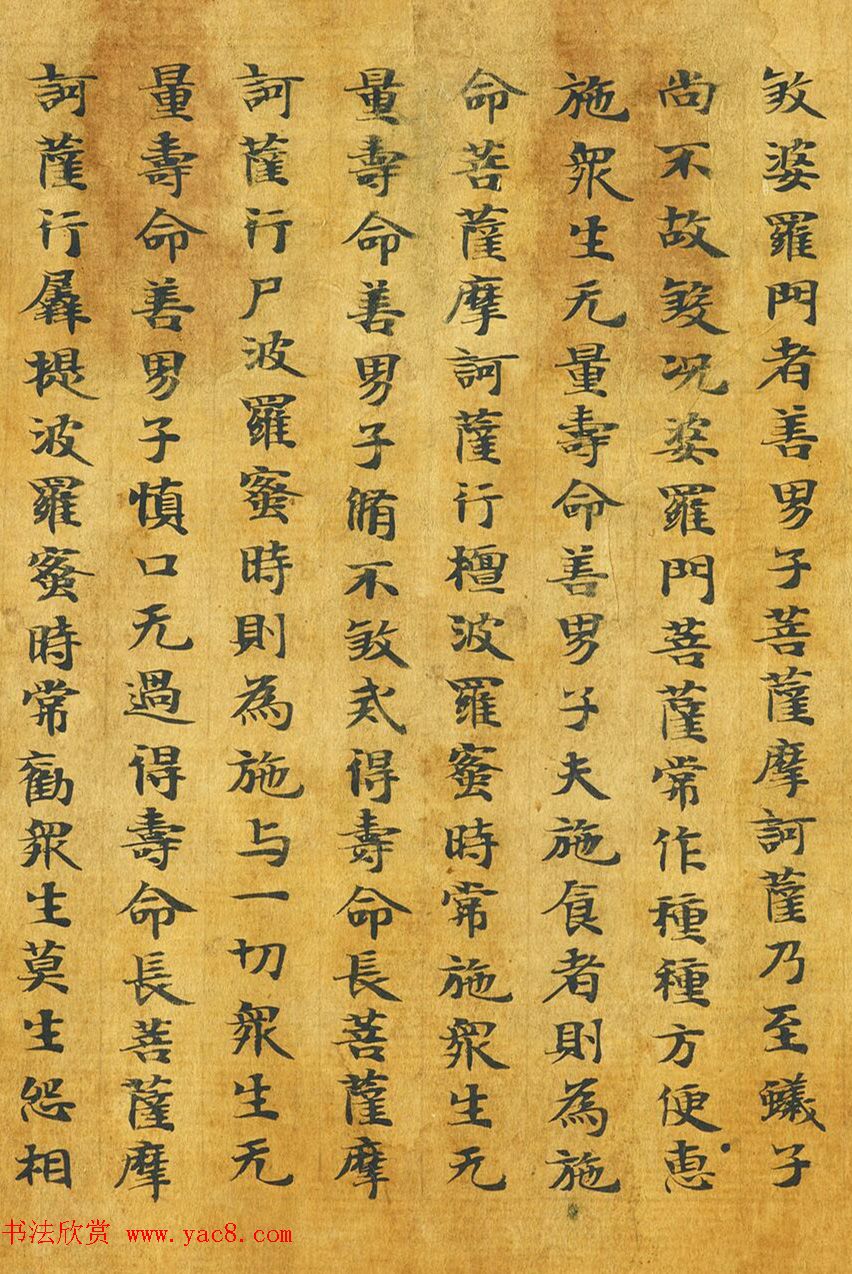 煞婆羅門者善男子菩薩摩訶薩乃至蟻子
尚不故煞况婆羅門菩薩常作種種方便惠
施眾生无量壽命善男子夫施食者則為施
命菩薩摩訶薩行檀波羅蜜時常施眾生无
量壽命善男子脩不煞戒得壽命長菩薩摩
訶薩行尸波羅蜜時則為施与一切眾生无
量壽命善男子慎口无過得壽命長菩薩摩
訶薩行羼提波羅蜜時常勸眾生莫生怨相
书法欣赏 www.yac8.com